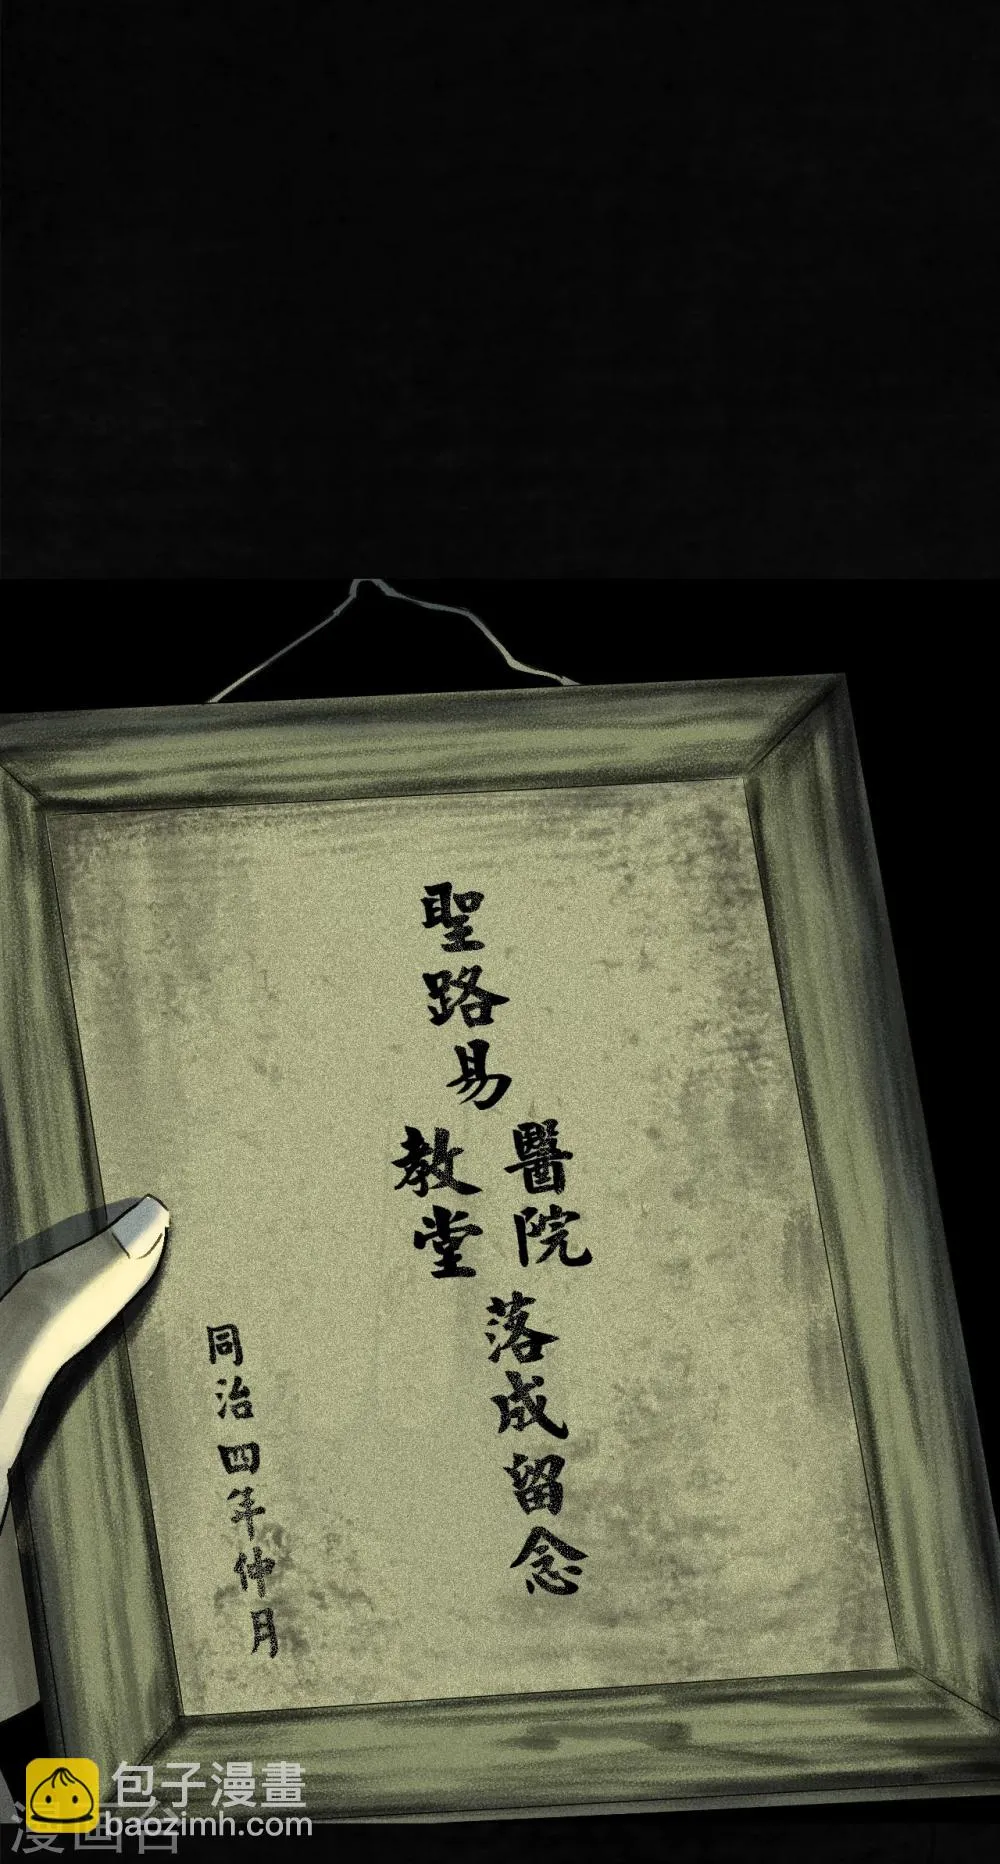 聖路易
醫院
教堂
落成留念
同治四年仲月
包子漫畫
baozimh.com
漫画台